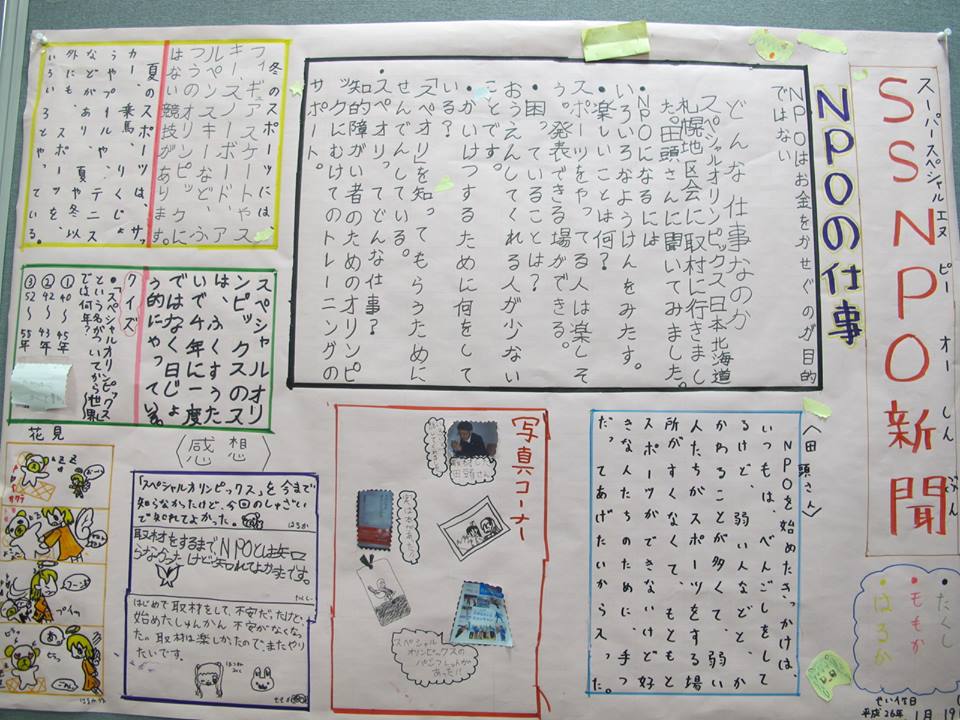 スーパースペシャル エヌ ピー オー しん ぶん
SSNPO新聞
・たくし
・ももか
・はるか
せい作日
平成26年 1月19
NPOの仕事
NPOはお金をかせぐのが目的
ではない
どんな仕事なのか
スペシャルオリンピックス日本北海道
札幌地区会に取材に行きまし
た。田頭さんに聞いてみました。
・NPOになるには
いろいろなようけんをみたす。
・楽しいことは何?
スポーツをやってる人は楽しそ
う。発表できる場ができる。
・困っていることは?
おうえんしてくれる人が少ない
ことです。
・かいけつするために何をして
いる?
「スペオリ」を知ってもらうために
せんでんしている。
・スペオリってどんな仕事?
知的障がい者のためのオリンピ
ックにむけてのトレーニングの
サポート。
冬のスポーツには、
フィギュアスケートやス
キー、スノーボード、
ルペンスキーなど、ふ
つうのオリンピックに
はない競技があります。
夏のスポーツは、サッ
カー、乗馬、りくじょ
うやプール、テニス
などがあり、夏や冬以
外にも、スポーツを
いろいろとやっている。
スペシャルオリ
ンピックスのス
は、ふくすうた
いで4年に一度
ではなく日じょ
う的にやっている。
クイズ
・「スペシャルオリンピックス」
という名がついてから世界
では何年?
①40〜45年
②42〜43年
③52〜55年
〈田頭さん〉
NPOを始めたきっかけは、
いつもは、べんごしをして
るけど、弱い人などと、か
かわることが多くて、弱い
人たちがスポーツをする場
所がすくなくて、もともと
スポーツができないけど好
きな人たちのために、手つ
だってあげたいからスっ
だった。
写真コーナー
取材した
田頭さん
スペシャル
オリンピックスの
パンフレットが
あった!!
〈感想〉
「スペシャルオリンピックス」を今まで
知らなかったけど、今回のしゅざい
で知れてよかった。
はるか
取材をするまで、NPOとは知
らなかったけど知れてよかったです。
たくし
はじめて取材をして、不安だったけど、
始めたしゅんかん不安がなくなっ
た。取材は楽しかったので、またやり
たいです。
花見